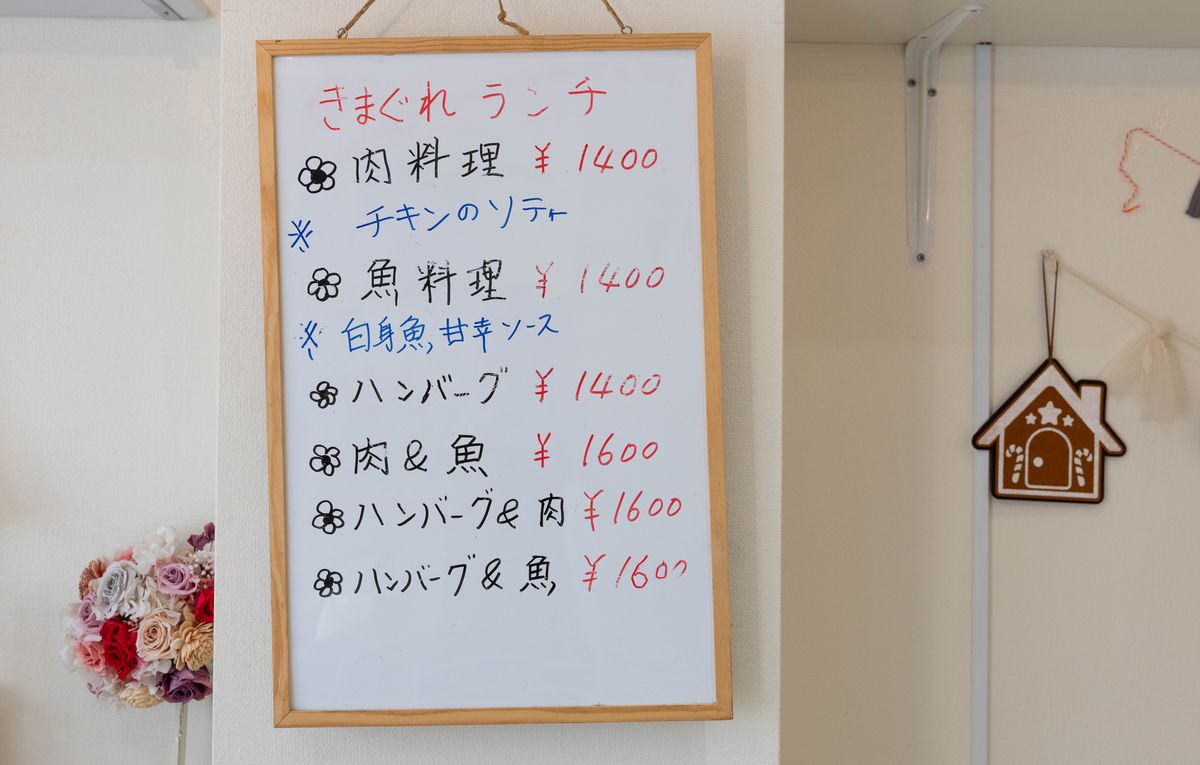 きまぐれ ランチ
肉料理 ¥1400
※ チキンのソテー
魚料理 ¥1400
※ 白身魚,甘辛ソース
ハンバーグ ¥1400
肉&魚 ¥1600
ハンバーグ&肉 ¥1600
ハンバーグ&魚 ¥1600